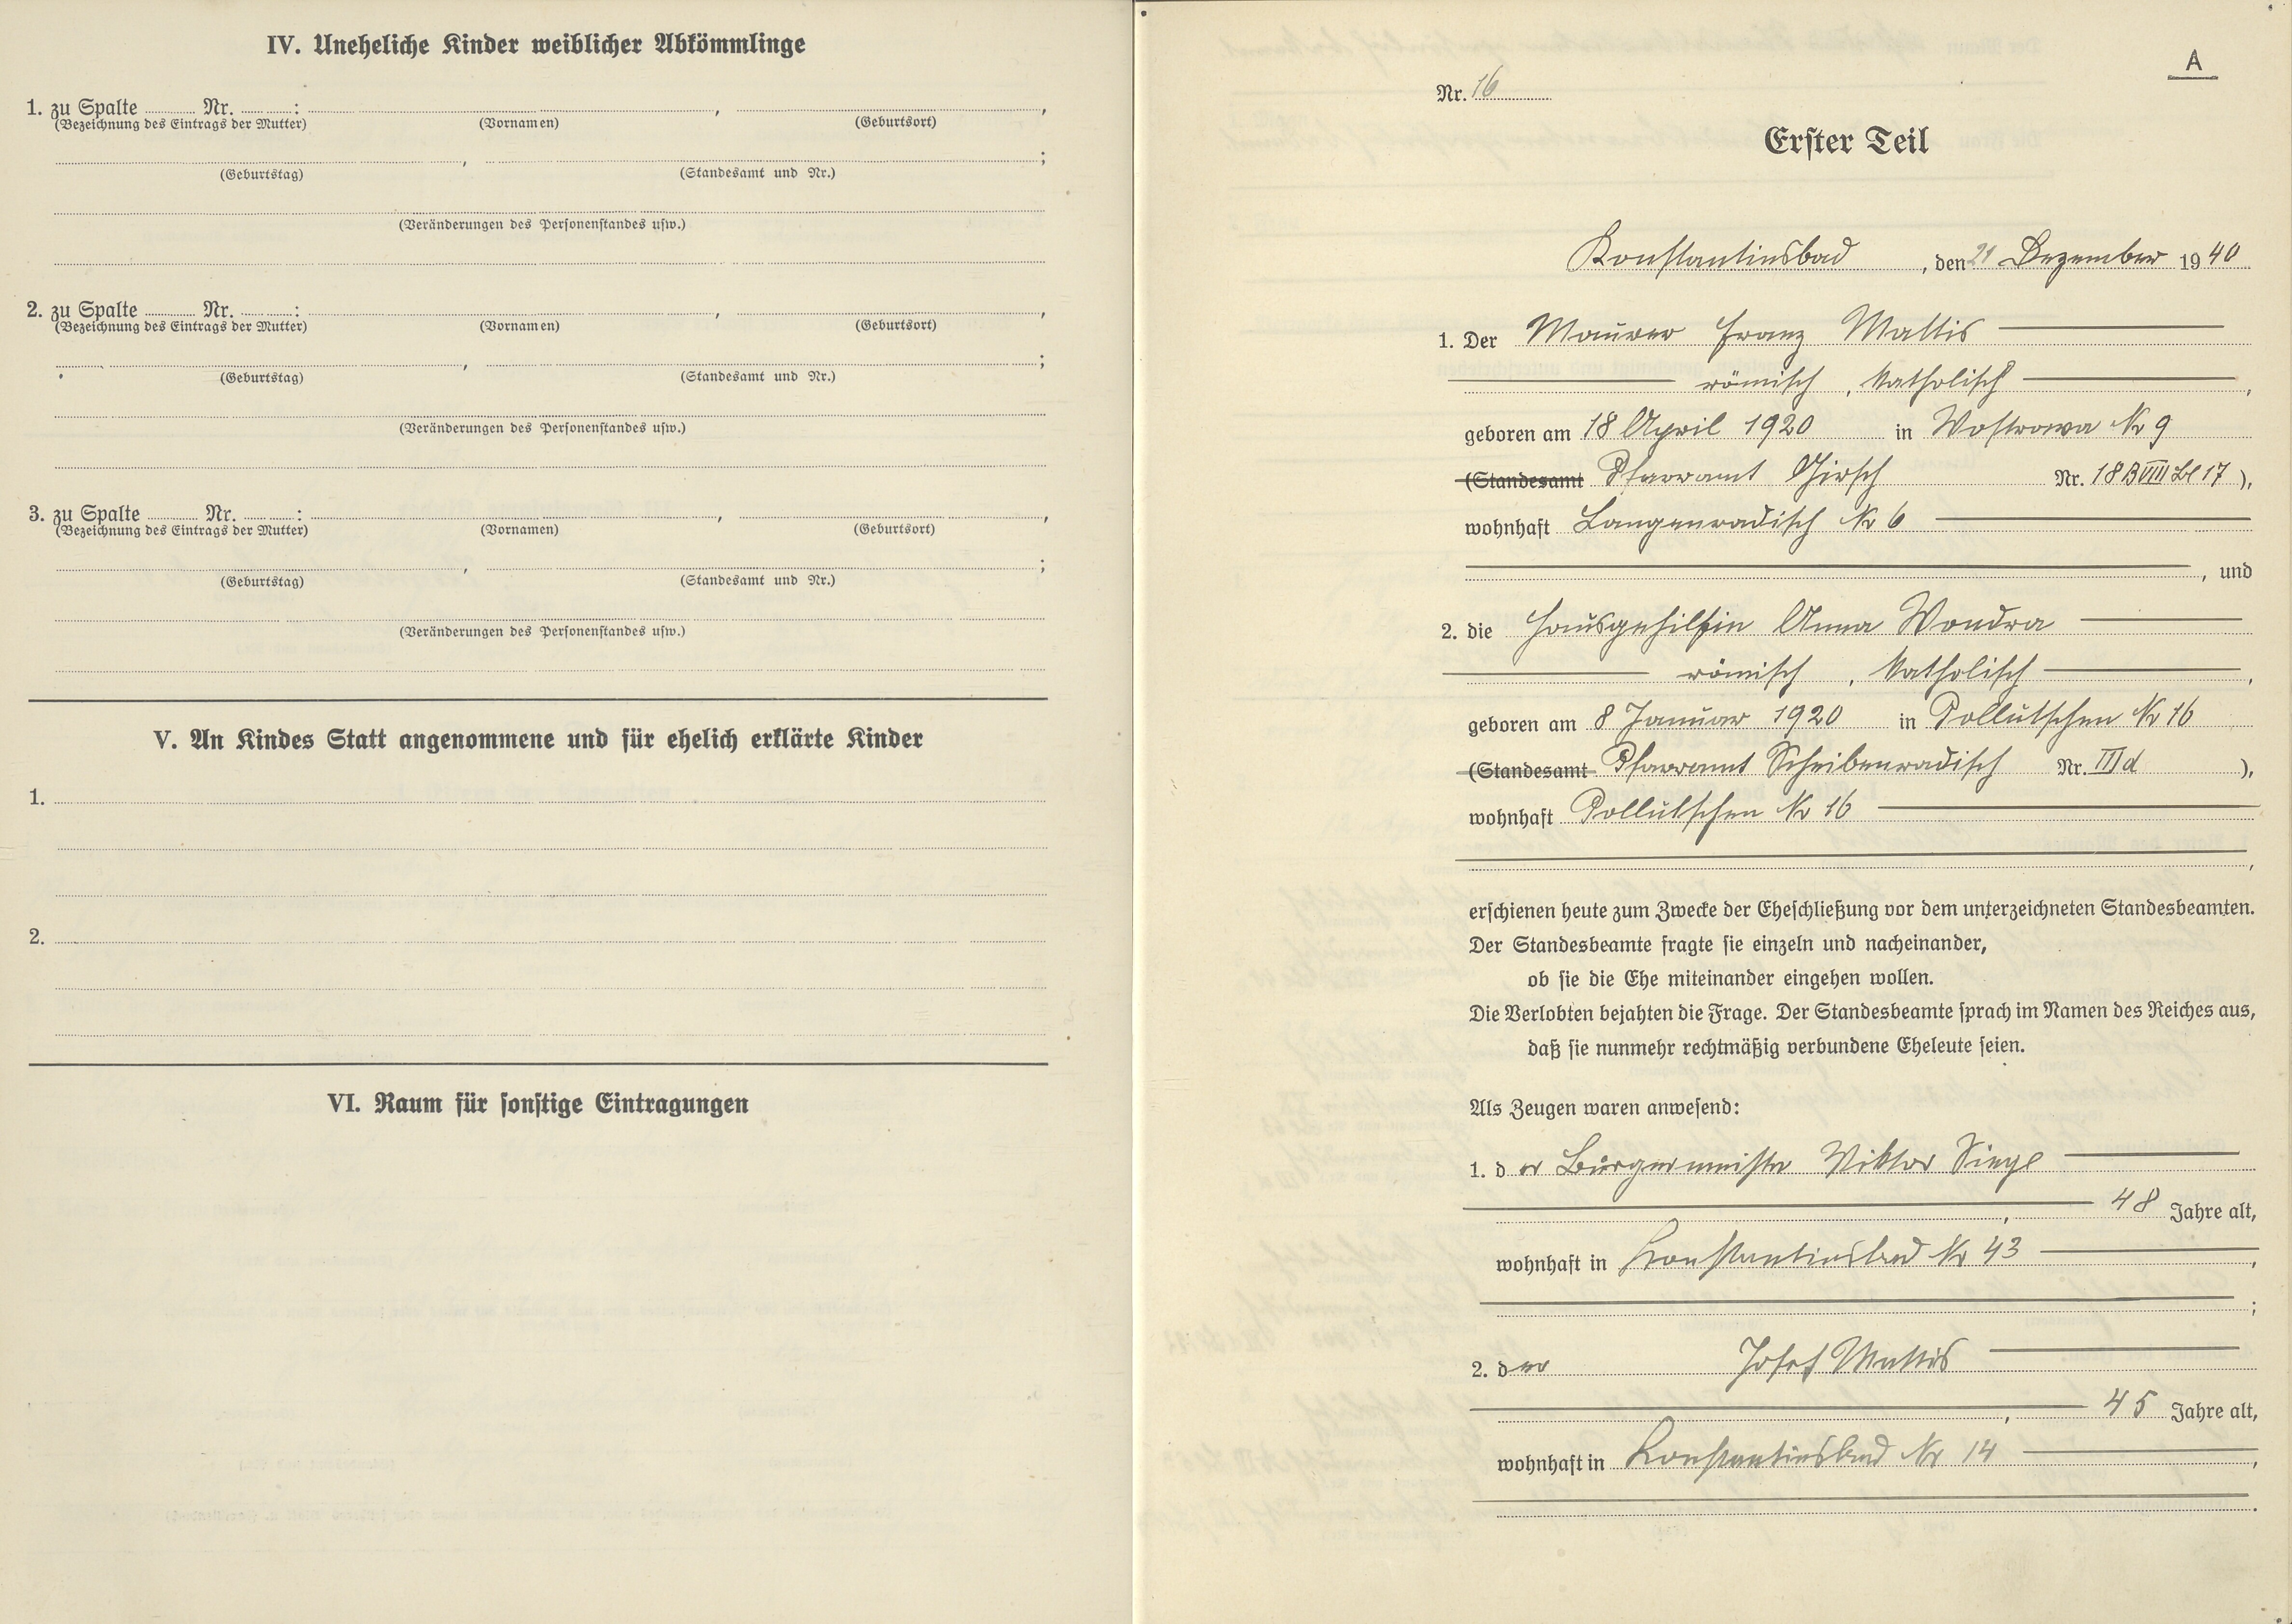 IV. Uneheliche Kinder weiblicher Abkömmlinge
1. zu Spalte ......... Nr. .........: ........., .........,
(Bezeichnung des Eintrags der Mutter) (Vornamen) (Geburtsort)
(Geburtstag) (Standesamt und Nr.)
(Veränderungen des Personenstandes usw.)
2. zu Spalte ......... Nr. .........: ........., .........,
(Bezeichnung des Eintrags der Mutter) (Vornamen) (Geburtsort)
(Geburtstag) (Standesamt und Nr.)
(Veränderungen des Personenstandes usw.)
3. zu Spalte ......... Nr. .........: ........., .........,
(Bezeichnung des Eintrags der Mutter) (Vornamen) (Geburtsort)
(Geburtstag) (Standesamt und Nr.)
(Veränderungen des Personenstandes usw.)
V. An Kindes Statt angenommene und für ehelich erklärte Kinder
1.
2.
VI. Raum für sonstige Eintragungen
A
Nr. 16
Erster Teil
Konstantinsbad, den 21 Dezember 1940
1. Der Maurer Franz Mattis
römisch, katholisch,
geboren am 18 April 1920 in Wostrowa Nr 9
(Standesamt Pfarramt Girsch Nr. 18 B VIII Bl 17),
wohnhaft Langenradisch Nr 6
, und
2. die Hausgehilfin Anna Wondra
römisch, katholisch,
geboren am 8 Januar 1920 in Pollutschen Nr 16
(Standesamt Pfarramt Scheibenradisch Nr. III d),
wohnhaft Pollutschen Nr 16
,
erschienen heute zum Zwecke der Eheschließung vor dem unterzeichneten Standesbeamten.
Der Standesbeamte fragte sie einzeln und nacheinander,
ob sie die Ehe miteinander eingehen wollen.
Die Verlobten bejahten die Frage. Der Standesbeamte sprach im Namen des Reiches aus,
daß sie nunmehr rechtmäßig verbundene Eheleute seien.
Als Zeugen waren anwesend:
1. der Bürgermeister Viktor Siegl
, 48 Jahre alt,
wohnhaft in Konstantinsbad Nr 43,
;
2. der Josef Mattis
, 45 Jahre alt,
wohnhaft in Konstantinsbad Nr 14,
.